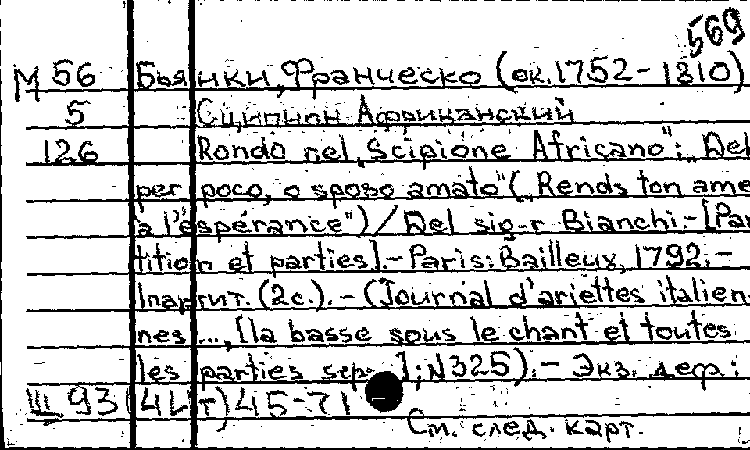 569
М 56 Бьянки, Франческо (ок. 1752-1810)
5 Сципион Африканский
126 Rondo nel „Scipione Africano": „Del
per poco, o sposo amato" („Rends ton ame
à l'espérance") / Del sig-r Bianchi.-[Par
tition et parties].- Paris: Bailleux, 1792.-
1 парт. (2с.). - (Journal d'ariettes italien-
nes ..., [la basse sous le chant et toutes
les parties sep. ]; N325).- Экз. деф.:
Ш 93 (4Lт) 45-71
См. след. карт.